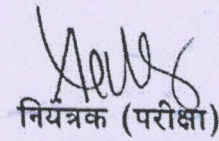 नियंत्रक (परीक्षा)